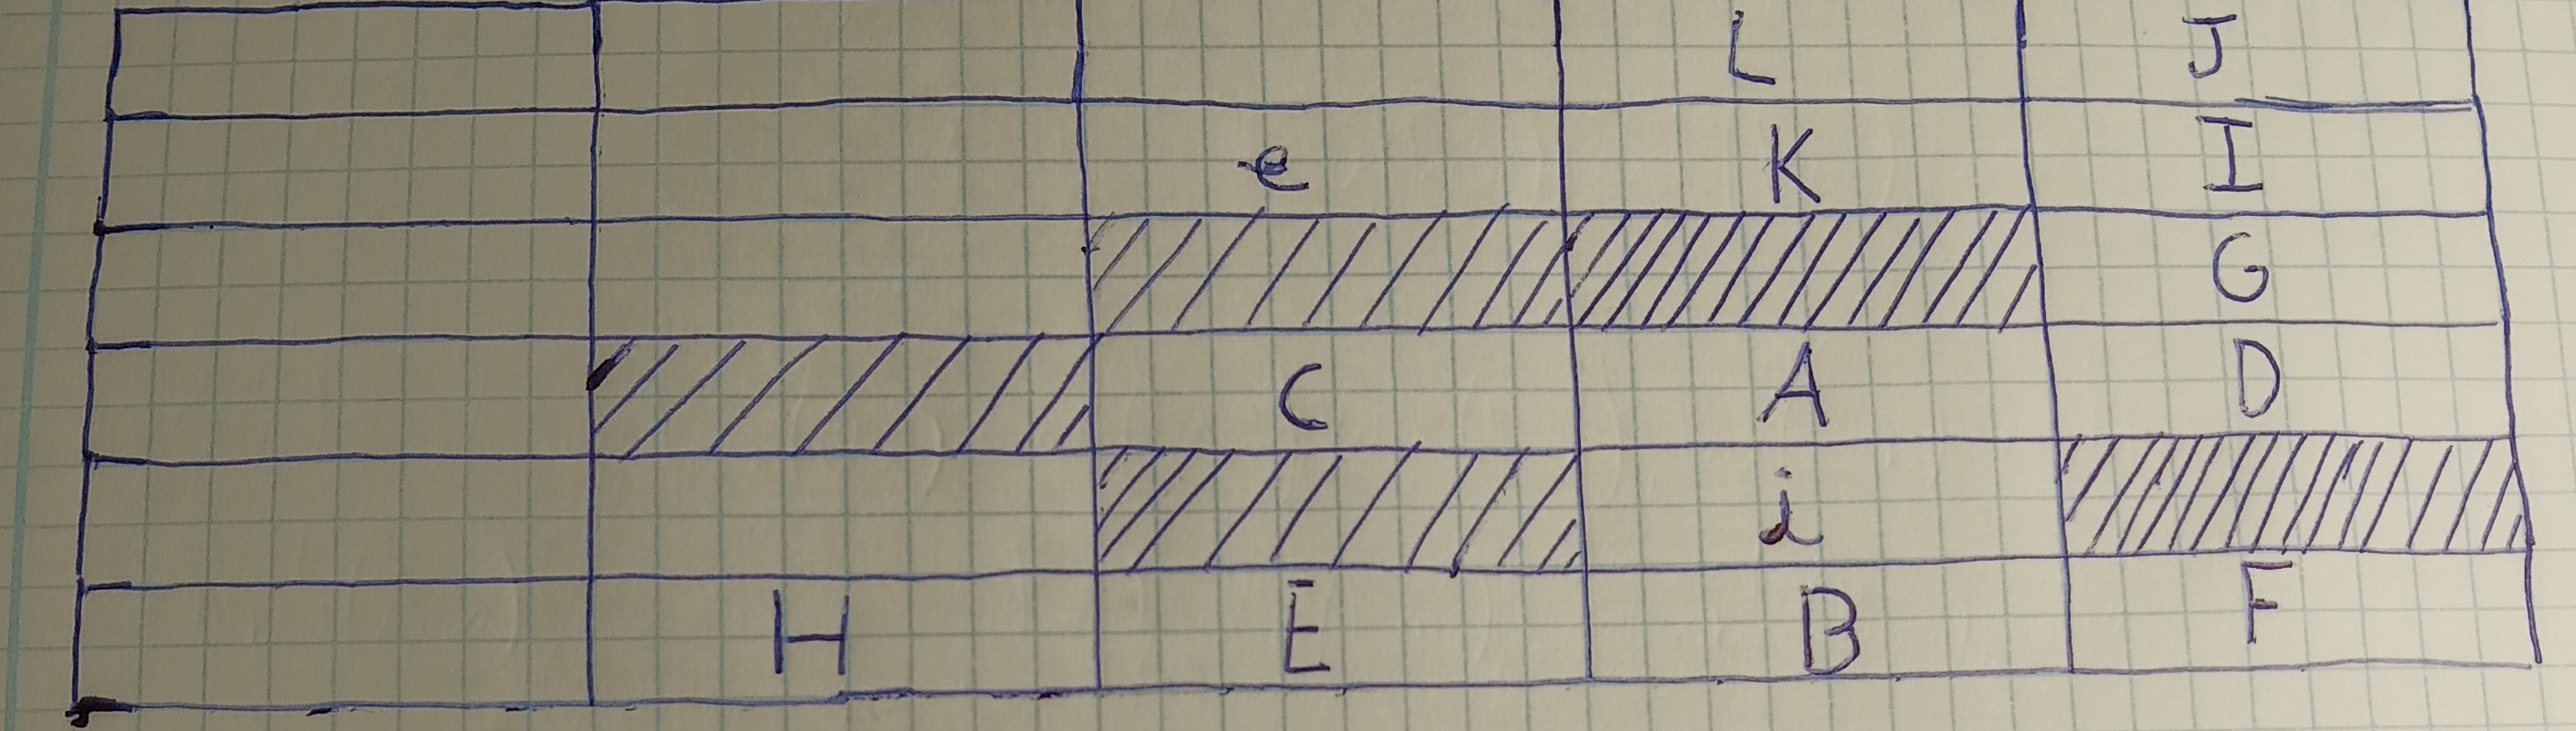 L J
e K I
G
C A D
i
H E B F